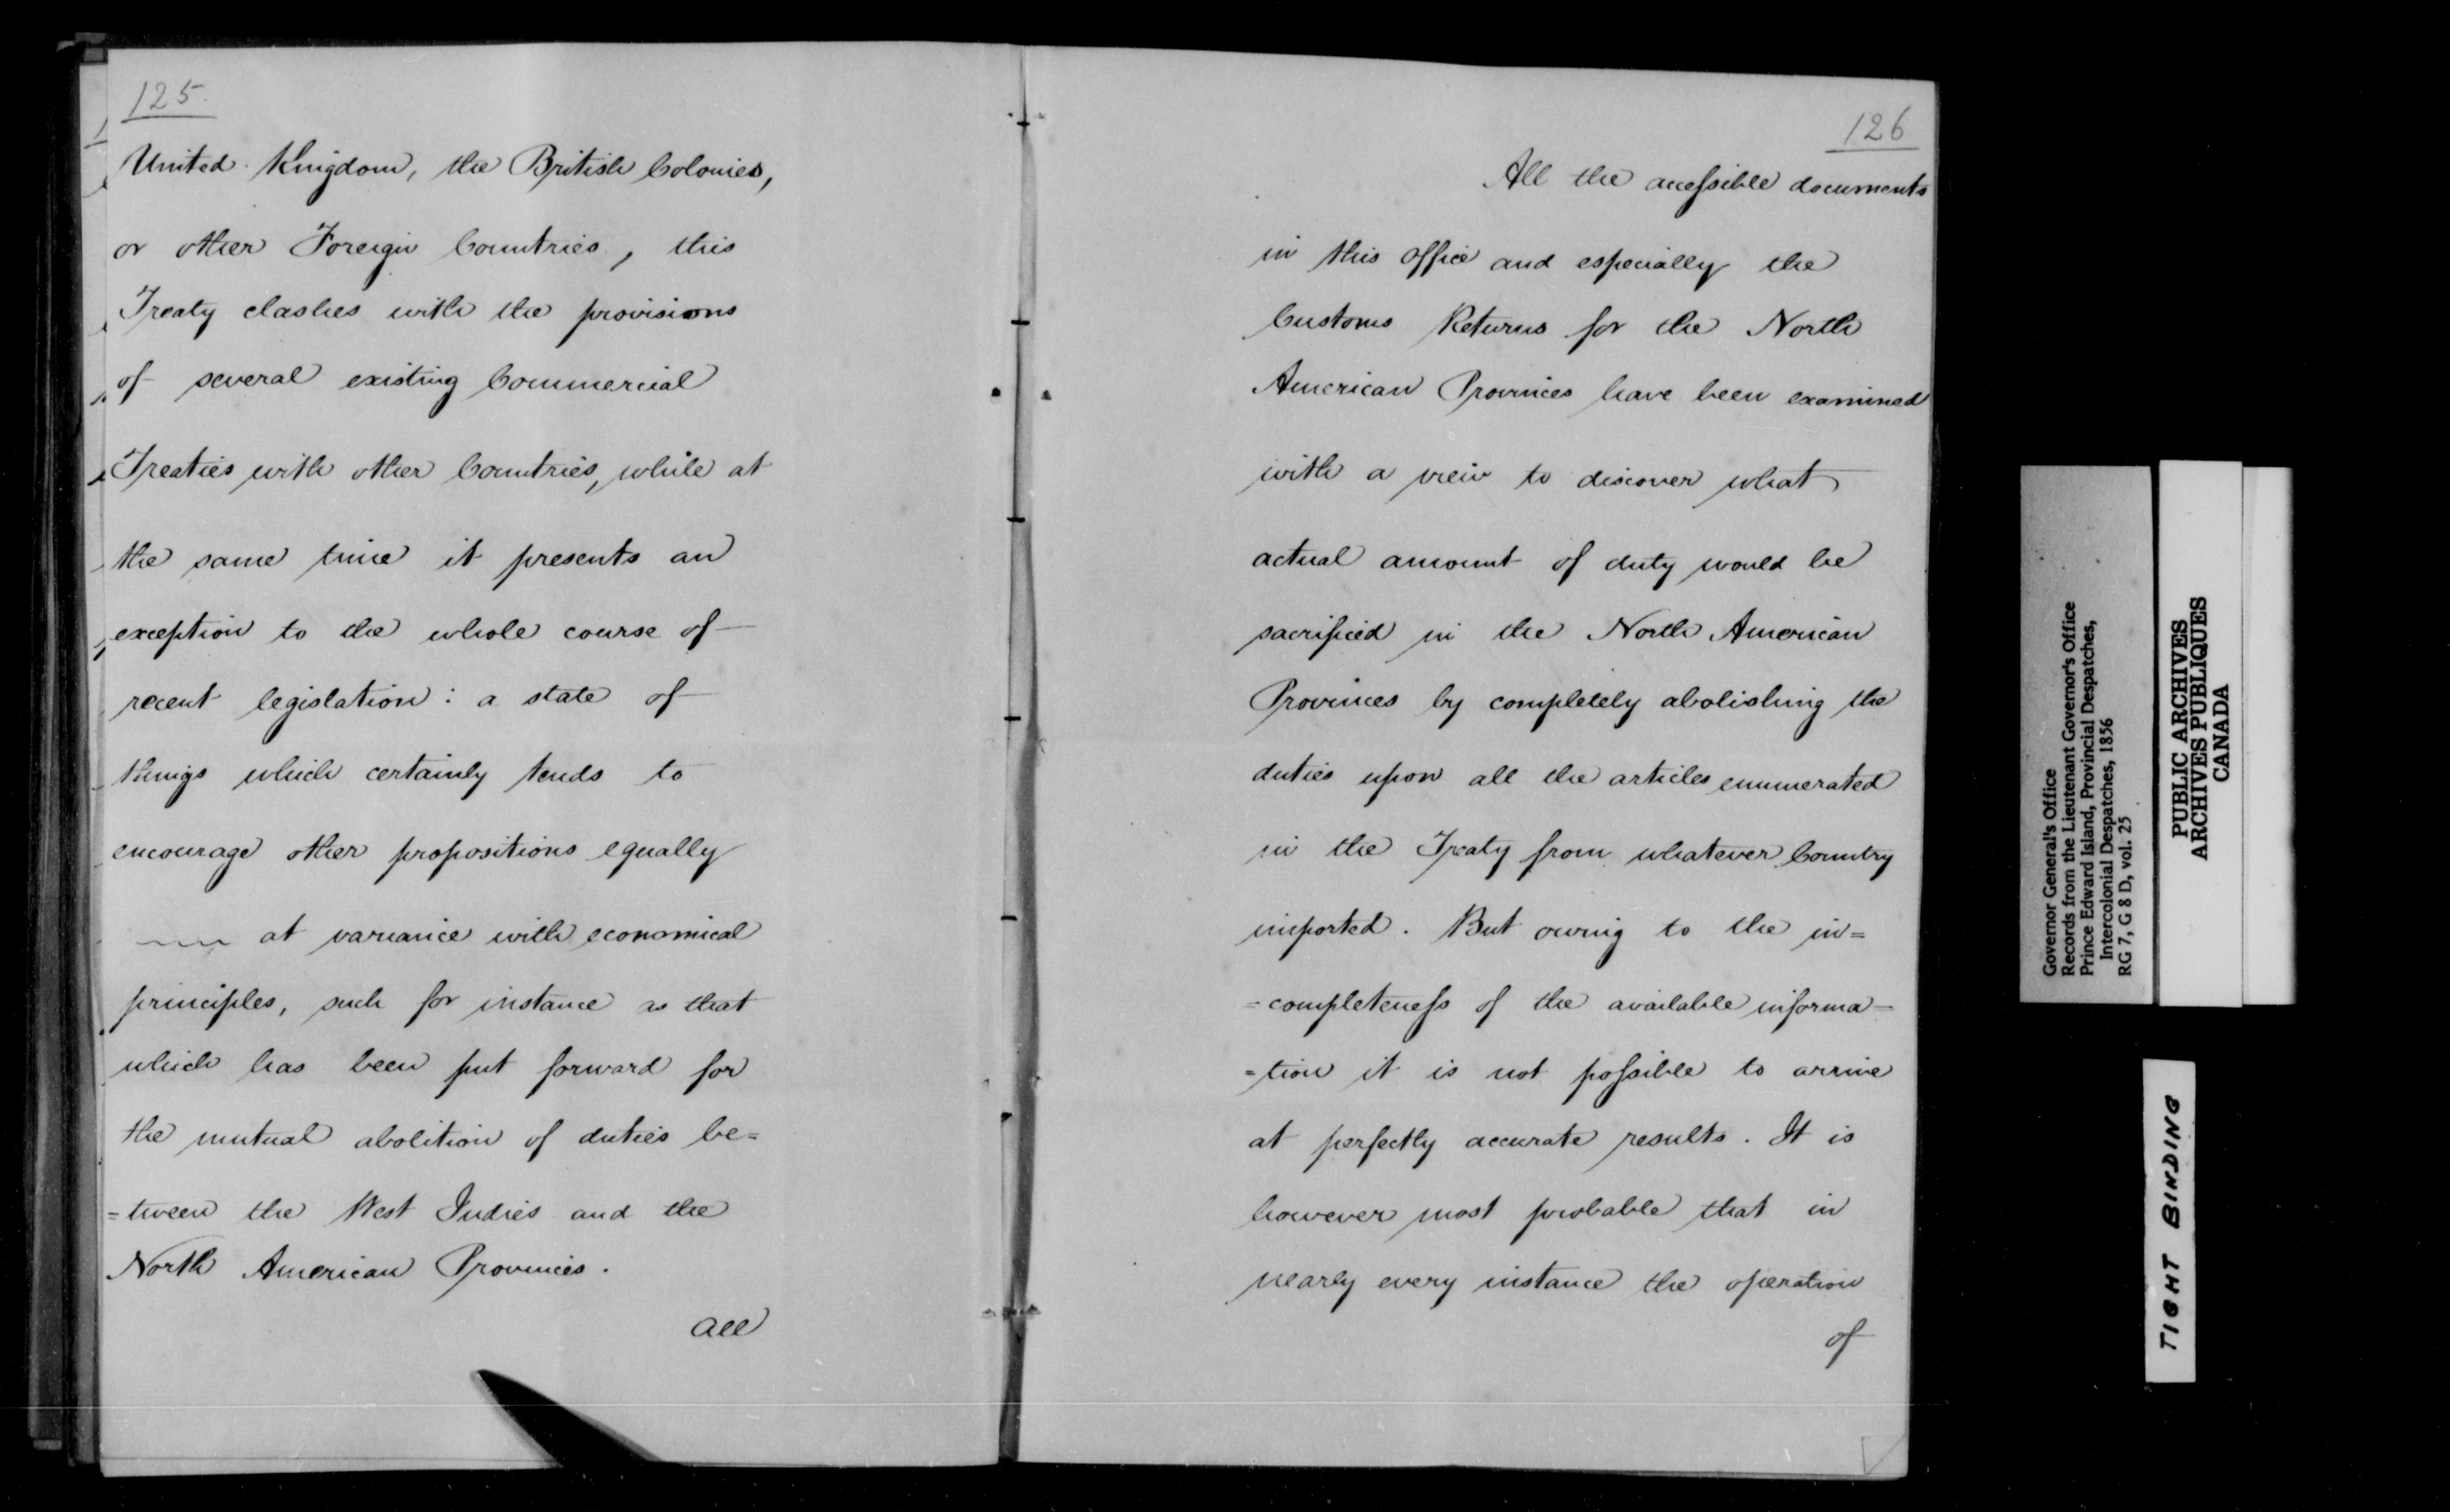 125.
United Kingdom, the British Colonies,
or other Foreign Countries, this
Treaty clashes with the provisions
of several existing Commercial
Treaties with other Countries, while at
the same time it presents an
exception to the whole course of
recent legislation: a state of
things which certainly tends to
encourage other propositions equally
at variance with economical
principles, such for instance as that
which has been put forward for
the mutual abolition of duties be=
=tween the West Indies and the
North American Provinces.
all
126
All the accessible documents
in this office and especially the
Customs Returns for the North
American Provinces have been examined
with a view to discover what
actual amount of duty would be
sacrificed in the North American
Provinces by completely abolishing the
duties upon all the articles enumerated
in the Treaty from whatever Country
imported. But owing to the in=
=completeness of the available informa-
=tion it is not possible to arrive
at perfectly accurate results. It is
however most probable that in
nearly every instance the operation
of
Governor General's Office
Records from the Lieutenant Governor's Office
Prince Edward Island, Provincial Despatches,
Intercolonial Despatches, 1856
RG 7, G 8 D, vol. 25
PUBLIC ARCHIVES
ARCHIVES PUBLIQUES
CANADA
TIGHT BINDING